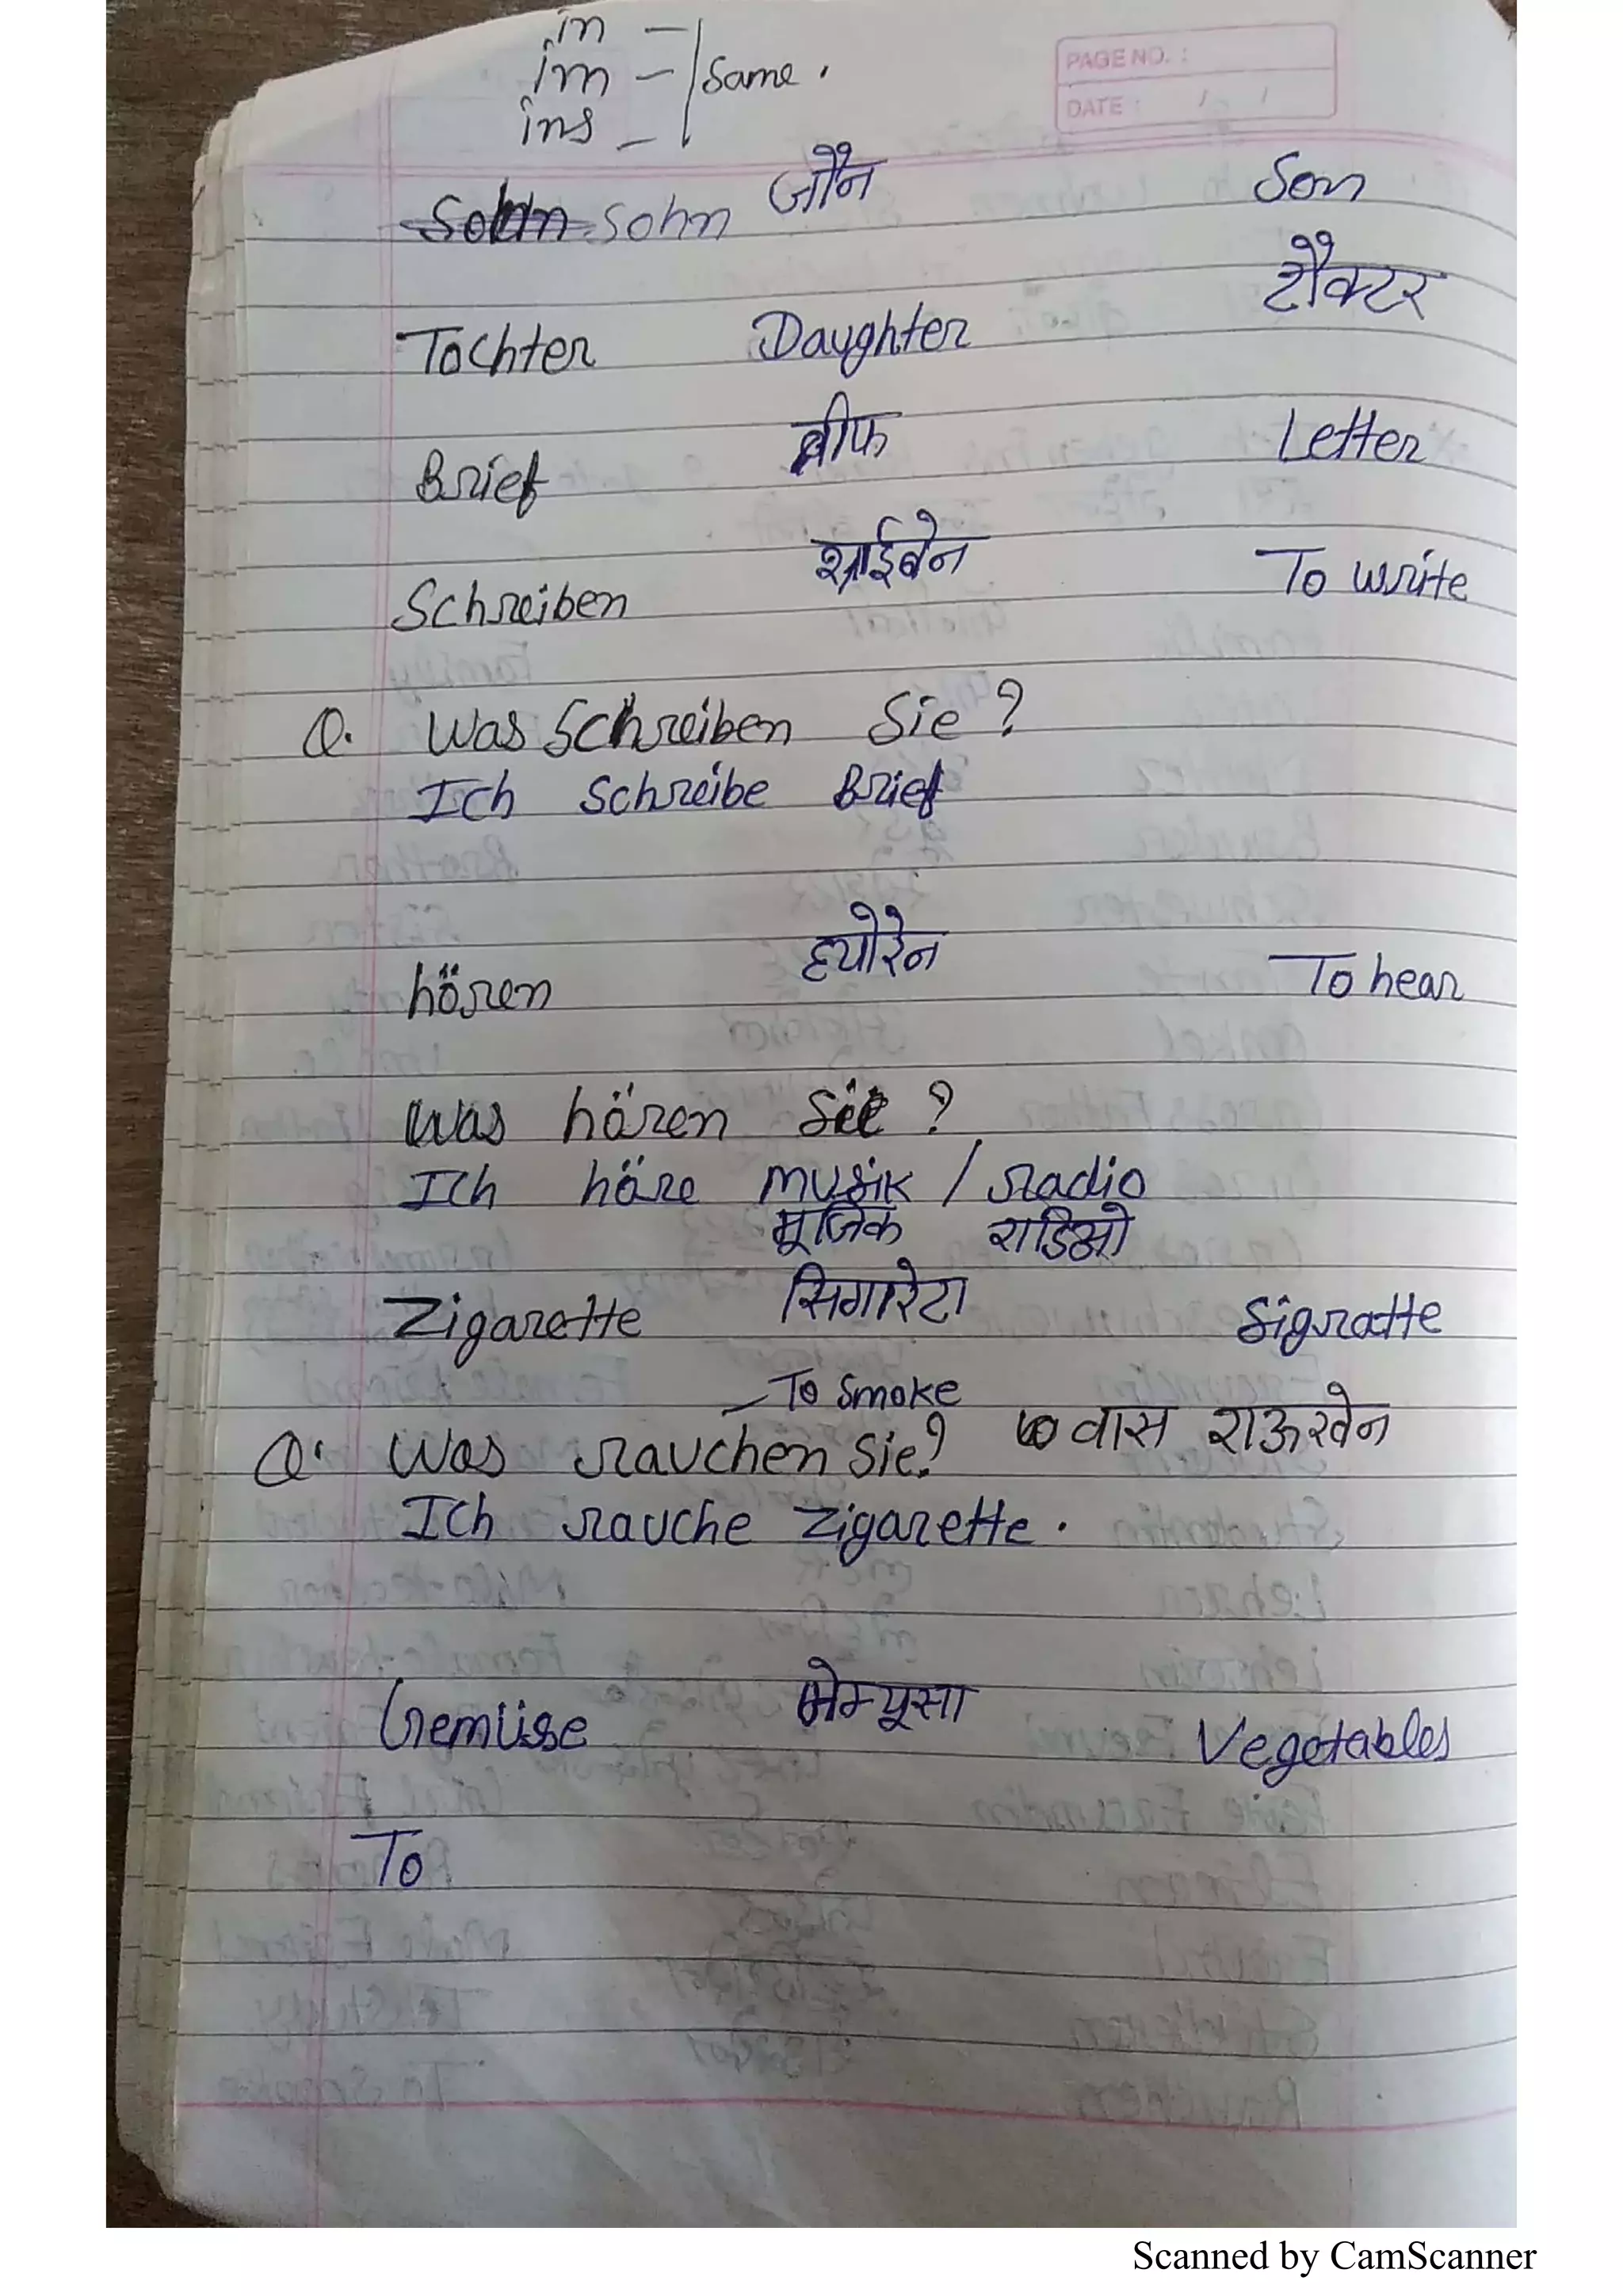 in -
im - same.
ins -
PAGE NO. :
DATE : / /
sohn जौन Son
टौक्टर
Tochter Daughter
Brief ब्रीफ Letter
Schreiben श्राईबेन To write
Q. Was Schreiben Sie?
Ich Schreibe Brief
hören ह्योरेन To hear
Was hören Sie?
Ich höre musik / radio
मूजिक राडिओ
Zigarette सिगारेटा Sigratte
To smoke
Q. Was rauchen Sie? वास राऊखेन
Ich rauche Zigarette.
Gemüse गेम्यूसा Vegetables
To
Scanned by CamScanner